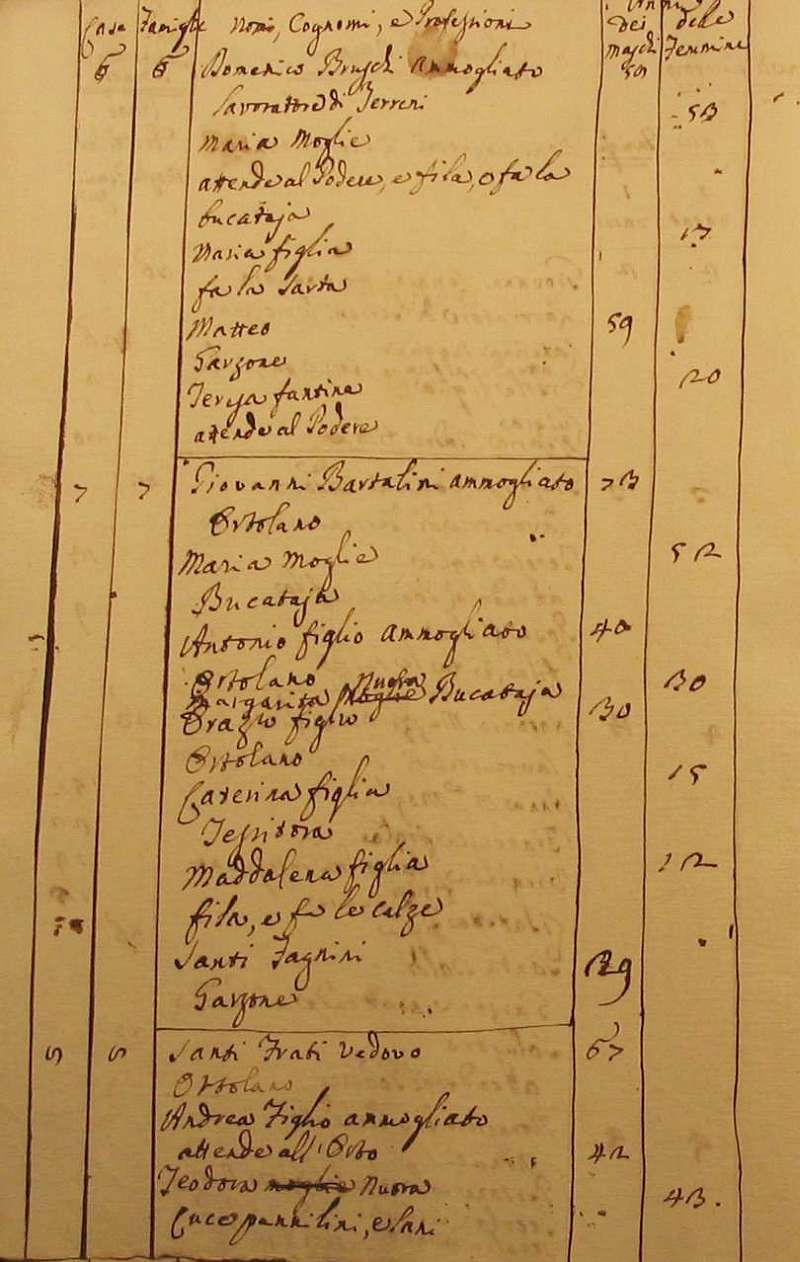 Case Famiglie Nomi, Cognomi, e Professioni Anni dei maschi delle Femmine
6 6 Domenico Bruschi Ammogliato 50
Lavoratore di Terreni
Maria Moglie 53
attende al Podere, e fila, e fa la
bucataja
Maria figlia 17
fa la Sarta
Matteo 59
Garzone
Teresa fantina 20
attende al Podere
7 7 Giovanni Bartalini ammogliato 73
Ortolano
Maria Moglie 52
Bucataja
Antonio figlio Ammogliato 40
Ortolano
Margarita Moglie Nuora Bucataja 30
Orazio figlio 30
Ortolano
Caterina figlia 15
Tessitora
Maddalena figlia 12
fila, e fa le calze
Santi Fagnini 29
Garzone
Santi Frati Vedovo 67
Ortolano
Andrea Figlio ammogliato
attende all'Orto 42
Teodora moglie Nuora 43.
Cuce pannilini, e lani